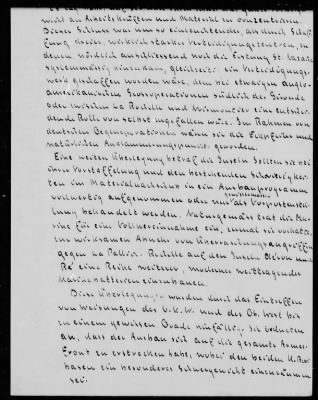 nicht an Arbeitskräften und Material zu konzentrieren.
Dieser Schluss war um so einleuchtender, als durch Schaf-
fung dreier, wirklich starker Verteidigungszentren, zu
denen nördlich anschliessend noch die Festung St. Nazaire
hinzukam, gleichsam ein Verteidigungs-
werk geschaffen worden wäre, dem bei etwaigen anglo-
amerikanischen Grossoperationen südlich der Gironde
oder zwischen La Rochelle und Noirmoutier eine entschei-
dende Rolle von selbst zugefallen wäre. Im Rahmen von
deutschen Gegenoperationen wären sie die Eckpfeiler und
natürlichen geworden.
Eine weitere Überlegung betraf die Inseln. Sollten sie bei
ihrer Vorstaffelung und den bestehenden Schwierigkei-
ten im Materialnachschub in ein Ausbauprogramm
vollwertig aufgenommen oder nur als Vorpostenstel-
lung behandelt werden. Naturgemäss trat die Ma-
rine für ein Volleinnahme ein, einmal sie
zur wirksamen Abwehr von Überraschungsangriffen
gegen La Pallice - Rochelle auf den Inseln Oléron und
Ré eine Reihe weiterer, moderner weittragender
Marinebatterien einzubauen.
Diese Überlegungen wurden durch das Eintreffen
von Weisungen des O.K.W. und des Ob. West bis
zu einem gewissen Grade hinfällig. Sie ordneten
an, dass der Ausbau sich auf die gesamte Armee-
Front zu erstrecken habe, wobei den beiden U-Boot
basen ein besonderes Schwergewicht einzuräumen
sei.